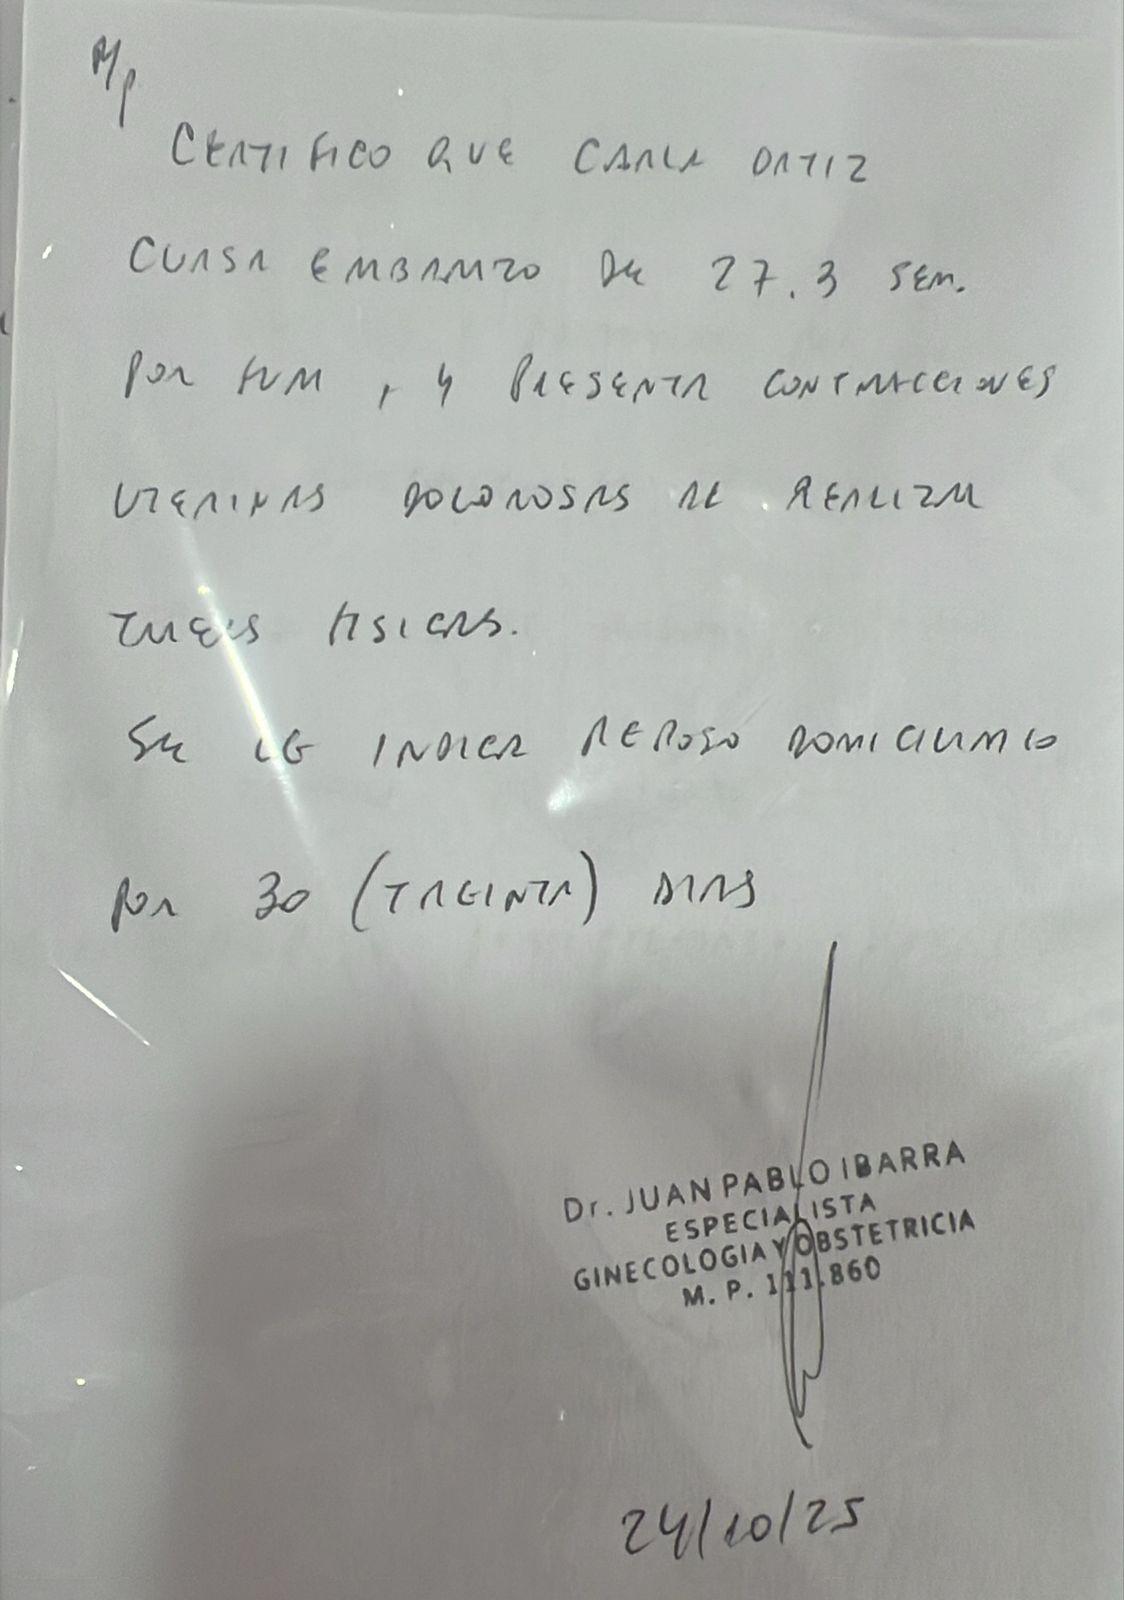 R/p
CERTIFICO QUE CARLA ORTIZ
CURSA EMBARAZO DE 27.3 SEM.
POR FUM, Y PRESENTA CONTRACCIONES
UTERINAS DOLOROSAS AL REALIZAR
TAREAS FISICAS.
SE LE INDICA REPOSO DOMICILIARIO
POR 30 (TREINTA) DIAS
Dr. JUAN PABLO IBARRA
ESPECIALISTA
GINECOLOGIA Y OBSTETRICIA
M. P. 111.860
24/10/25